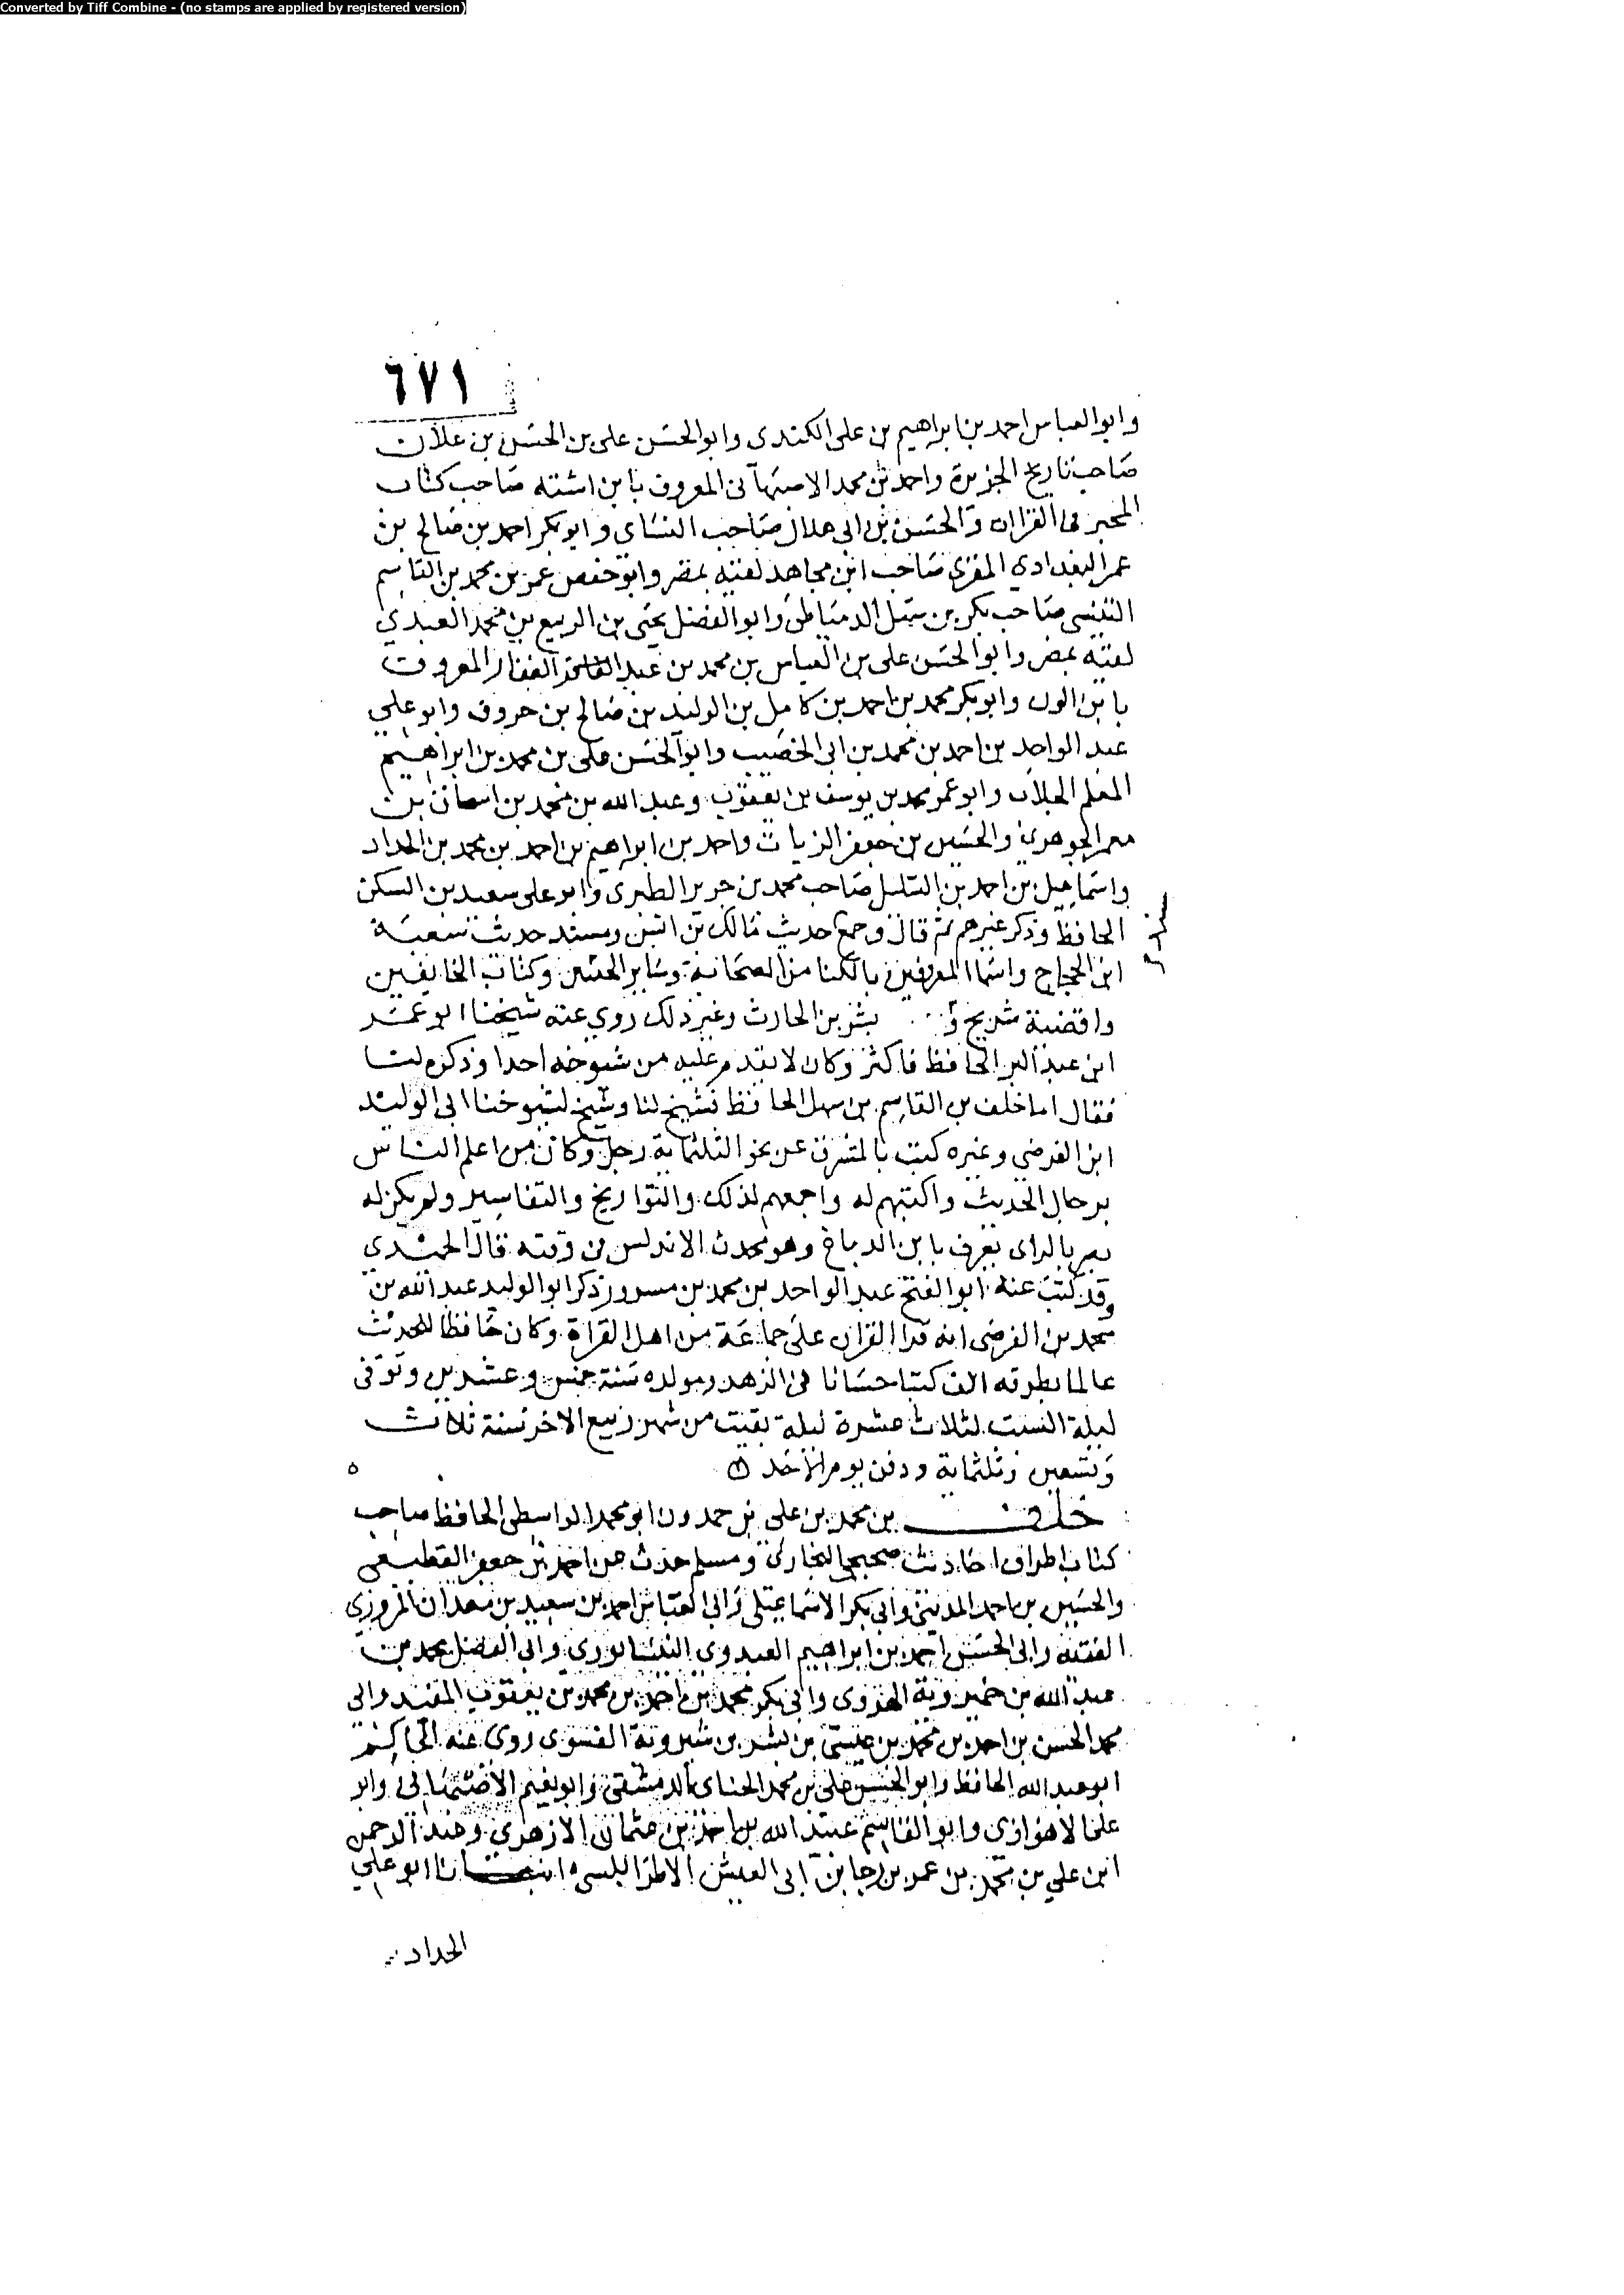 Converted by Tiff Combine - (no stamps are applied by registered version)
٦٧١
وابو العباس احمد بن ابراهيم بن على الكندى وابو الحسن على بن الحسن بن علان
صاحب تاريخ الجزيرة واحمد بن محمد الاصبهانى المعروف بابن اشته صاحب كتاب
المحبر فى القران والحسن بن ابى هلال صاحب النساى وابو بكر احمد بن صالح بن
عمر البغدادي المقرى صاحب ابن مجاهد لقيته بمصر وابو حفص عمر بن محمد بن القاسم
التنيسى صاحب بكر بن سهل الدمياطى وابو الفضل يحيى بن الربيع بن محمد العبدي
لقيته بمصر وابو الحسن على بن العباس بن محمد بن عبد الغفار المعروف
بابن الون وابو بكر محمد بن احمد بن كامل بن الوليد بن صالح بن خروف وابو علي
عبد الواحد بن احمد بن محمد بن ابى الخصيب وابو الحسن على بن محمد بن ابراهيم
المعلم الجلاب وابو عمر محمد بن يوسف بن يعقوب وعبد الله بن محمد بن اسحاق بن
معمر الجوهري والحسين بن جعفر الزيات واحمد بن ابراهيم بن احمد بن محمد بن الحداد
واسماعيل بن احمد بن صاحب محمد بن جرير الطبرى وابو على سعيد بن السكن
الحافظ وذكر غيرهم ثم قال وجمع حديث مالك بن انس ومسند حديث شعبة
ابن الحجاج واسما المعروفين بالكنا من الصحابة وساير المحدثين وكتاب الخايفين
واقضية شريح و بشر بن الحارث وغير ذلك روي عنه شيخنا ابو عمر
ابن عبد البر الحافظ فاكثر وكان لا يقدم عليه من شيوخه احدا وذكره لنا
فقال اما خلف بن القاسم بن سهل الحافظ فشيخ لنا وشيخ لشيوخنا ابى الوليد
ابن الفرضي وغيره كتب بالمشرق عن نحو الثلثماية رجل وكان من اعلم الناس
برجال الحديث واكتبهم له واجمعهم لذلك والتواريخ والتفاسير ولم يكن له
بصر بالراى يعرف بابن الدباغ وهو محدث الاندلس فى وقته قال الحميدي
وقد كتب عنه ابو الفتح عبد الواحد بن محمد بن مسرور ذكر ابو الوليد عبد الله بن
محمد بن الفرضى انه قرا القران على جماعة من اهل القراة وكان حافظا للحديث
عالما بطرقه الف كتبا حسانا فى الزهد ومولده سنة خمس وعشرين وتوفى
ليلة السبت لثلاث عشرة ليلة بقيت من شهر ربيع الاخر سنة ثلاث
وتسعين وثلثماية ودفن يوم الاحد
خلف بن محمد بن على بن حمدون ابو محمد الواسطى الحافظ صاحب
كتاب اطراف احاديث صحيحي البخارى ومسلم حدث عن احمد بن جعفر القطيعى
والحسين بن احمد المدينى وابى بكر الاسماعيلى وابى العباس احمد بن سعيد بن معدان المروزي
الفقيه وابى الحسن احمد بن ابراهيم العبدوي النيسابوري وابى الفضل محمد بن
عبد الله بن خميرويه الهروى وابى بكر محمد بن احمد بن محمد بن يعقوب المفيد وابى
محمد الحسن بن احمد بن محمد بن عيسى بن بشر بن شيرويه الفسوى روى عنه الحاكم
ابو عبد الله الحافظ وابو الحسن على بن محمد الحناى الدمشقى وابو نعيم الاصبهانى وابو
على الاهوازى وابو القاسم عبيد الله بن احمد بن عثمان الازهري وعبد الرحمن
ابن علي بن محمد بن عمر بن رجا بن ابى العيش الاطرابلسى انبانا ابو علي
الحداد